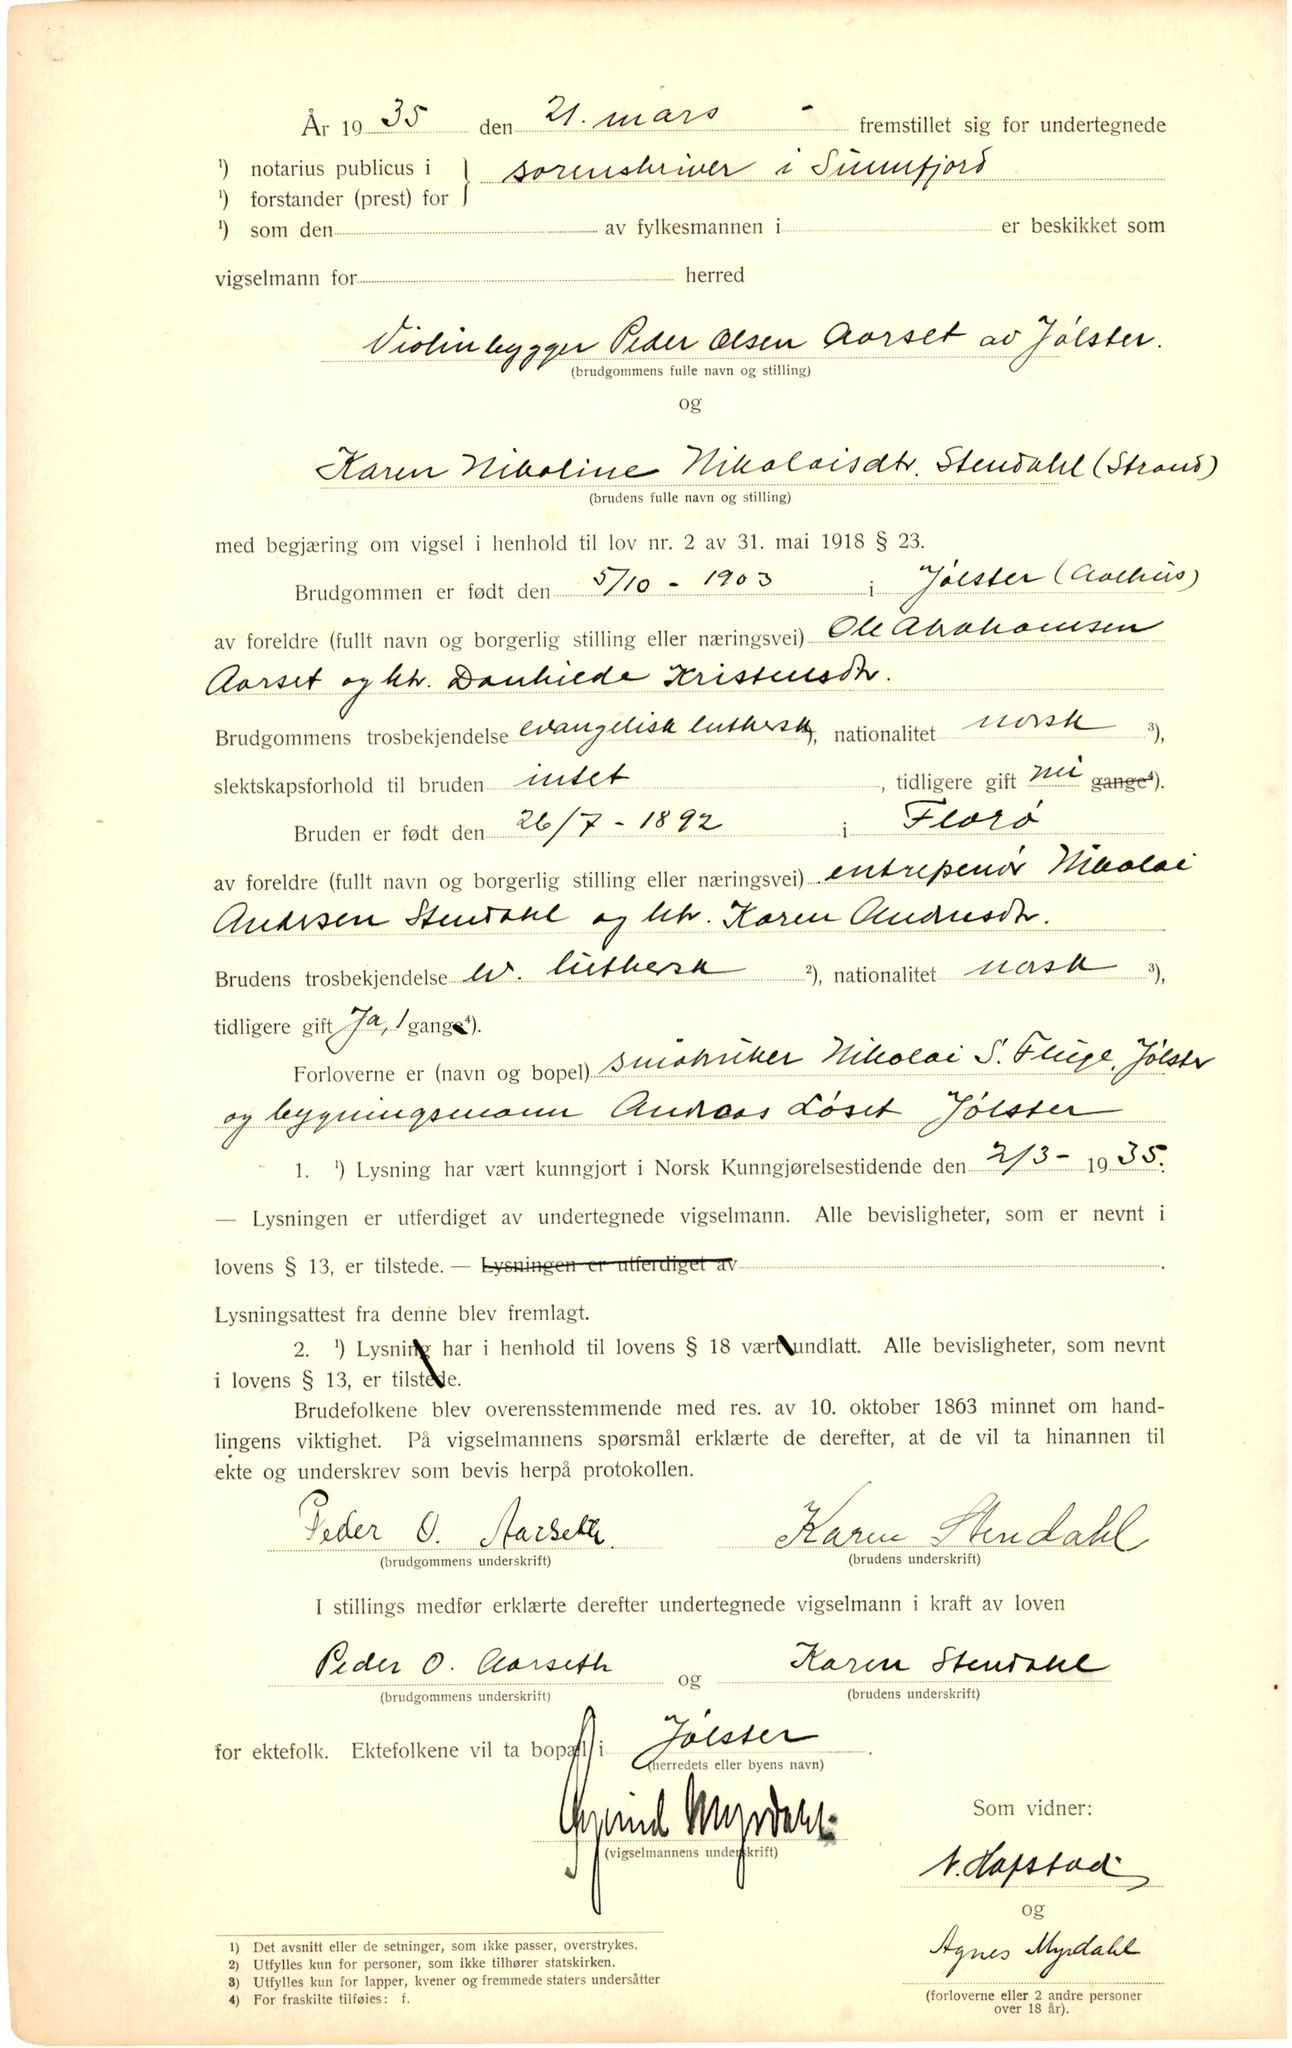 År 1935 den 21. mars - fremstillet sig for undertegnede
¹) notarius publicus i
¹) forstander (prest) for
} sorenskriver i Sunnfjord
¹) som den av fylkesmannen i er beskikket som
vigselmann for herred
Violinbygger Peder Olsen Aarset av Jølster.
(brudgommens fulle navn og stilling)
og
Karen Nikoline Nikolaisdtr. Stendahl (Strand)
(brudens fulle navn og stilling)
med begjæring om vigsel i henhold til lov nr. 2 av 31. mai 1918 § 23.
Brudgommen er født den 5/10 - 1903 i Jølster (Aalhus)
av foreldre (fullt navn og borgerlig stilling eller næringsvei) Ole Abrahamsen
Aarset og htr. Kristensdtr.
Brudgommens trosbekjendelse evangelisk luthersk ²), nationalitet norsk ³),
slektskapsforhold til bruden intet, tidligere gift nei gange⁴).
Bruden er født den 26/7 - 1892 i Florø
av foreldre (fullt navn og borgerlig stilling eller næringsvei) entrepenør Nikolai
Andersen Stendahl og htr. Karen Andersdtr.
Brudens trosbekjendelse ev. luthersk ²), nationalitet norsk ³),
tidligere gift Ja, 1 gange⁴).
Forloverne er (navn og bopel) småbruker Nikolai S. Fluge, Jølster
og bygningsmann Andreas Løset Jølster
1. ¹) Lysning har vært kunngjort i Norsk Kunngjørelsestidende den 2/3 - 1935.
— Lysningen er utferdiget av undertegnede vigselmann. Alle bevisligheter, som er nevnt i
lovens § 13, er tilstede. — Lysningen er utferdiget av .
Lysningsattest fra denne blev fremlagt.
2. ¹) Lysning har i henhold til lovens § 18 vært undlatt. Alle bevisligheter, som nevnt
i lovens § 13, er tilstede.
Brudefolkene blev overensstemmende med res. av 10. oktober 1863 minnet om hand-
lingens viktighet. På vigselmannens spørsmål erklærte de derefter, at de vil ta hinannen til
ekte og underskrev som bevis herpå protokollen.
Peder O. Aarseth. Karen Stendahl
(brudgommens underskrift) (brudens underskrift)
I stillings medfør erklærte derefter undertegnede vigselmann i kraft av loven
Peder O. Aarseth og Karen Stendahl
(brudgommens underskrift) (brudens underskrift)
for ektefolk. Ektefolkene vil ta bopæl i Jølster.
(herredets eller byens navn)
Øyvind Myrdahl
(vigselmannens underskrift)
Som vidner:
N. Hafstad
og
Agnes Myrdahl
(forloverne eller 2 andre personer
over 18 år).
1) Det avsnitt eller de setninger, som ikke passer, overstrykes.
2) Utfylles kun for personer, som ikke tilhører statskirken.
3) Utfylles kun for lapper, kvener og fremmede staters undersåtter
4) For fraskilte tilføies: f.